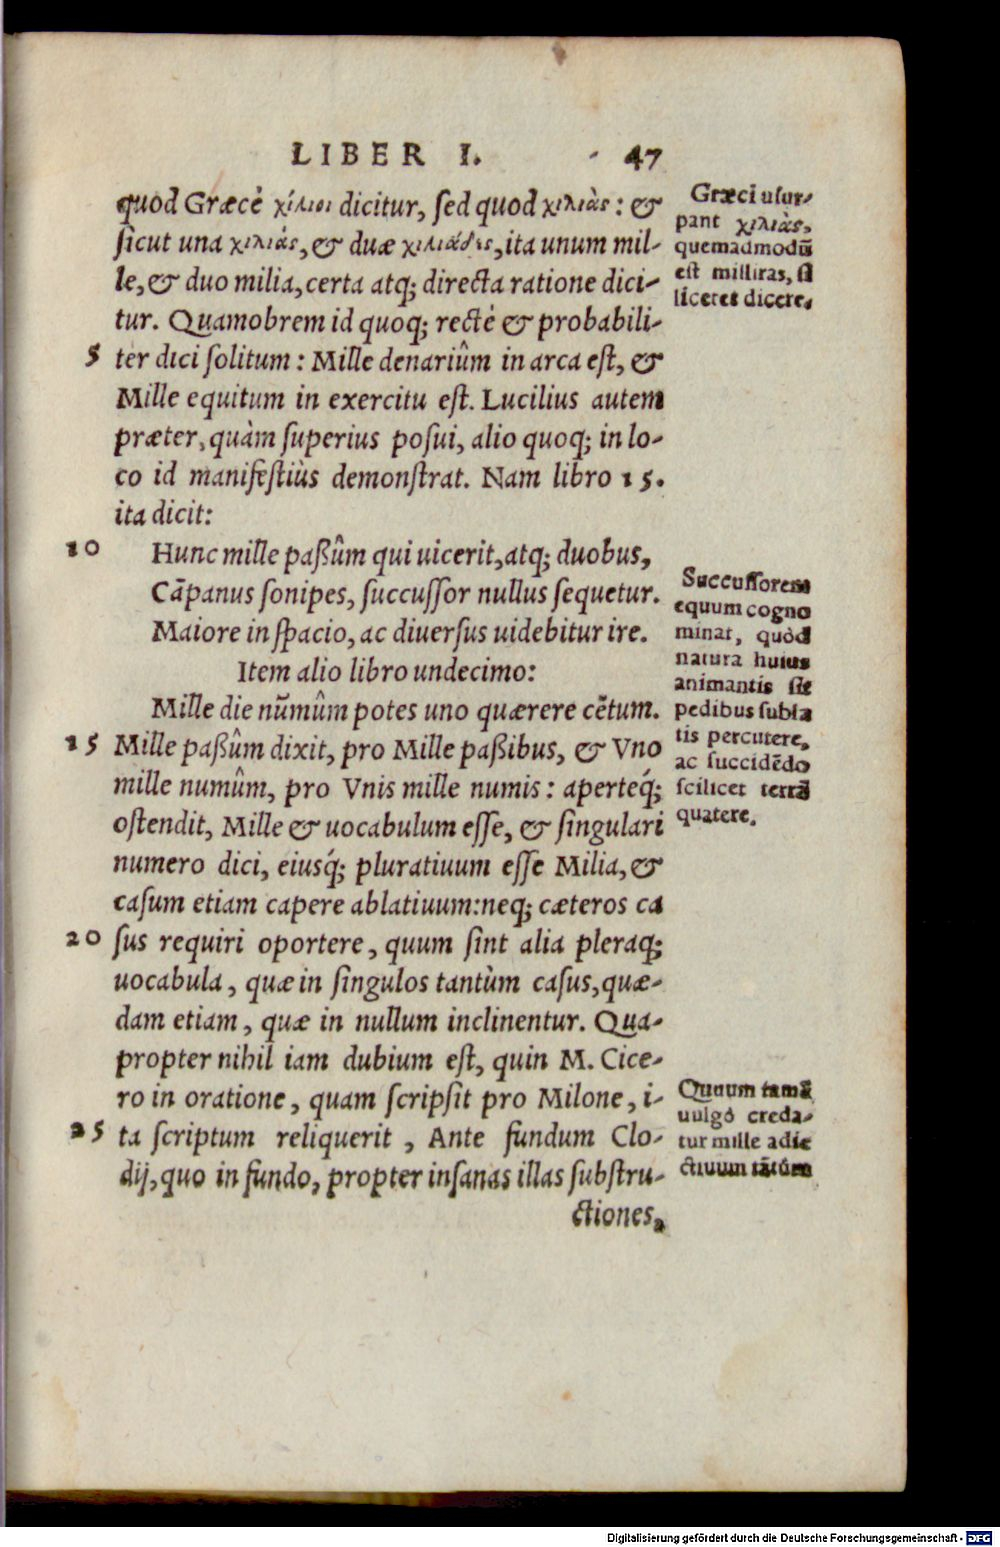 LIBER I. 47
quod Græcè χίλιοι dicitur, sed quod χιλιὰς: &
sicut una χιλιὰς, & duæ χιλιάδες, ita unum mil-
le, & duo milia, certa atq; directa ratione dici-
tur. Quamobrem id quoq; rectè & probabili-
5 ter dici solitum: Mille denariûm in arca est, &
Mille equitum in exercitu est. Lucilius autem
præter, quàm superius posui, alio quoq; in lo-
co id manifestiùs demonstrat. Nam libro 15.
ita dicit:
10 Hunc mille paßûm qui uicerit, atq; duobus,
Cāpanus sonipes, succussor nullus sequetur.
Maiore in spacio, ac diuersus uidebitur ire.
Item alio libro undecimo:
Mille die nūmûm potes uno quærere cētum.
15 Mille paßûm dixit, pro Mille paßibus, & Vno
mille numûm, pro Vnis mille numis: aperteq́;
ostendit, Mille & uocabulum esse, & singulari
numero dici, eiusq́; pluratiuum esse Milia, &
casum etiam capere ablatiuum: neq; cæteros ca
20 sus requiri oportere, quum sint alia pleraq;
uocabula, quæ in singulos tantùm casus, quæ-
dam etiam, quæ in nullum inclinentur. Qua-
propter nihil iam dubium est, quin M. Cice-
ro in oratione, quam scripsit pro Milone, i-
25 ta scriptum reliquerit, Ante fundum Clo-
dij, quo in fundo, propter insanas illas substru-
ctiones,
Græci usur-
pant χιλιὰς,
quemadmodū
est milliras, si
liceret dicere.
Succussorem
equum cogno
minat, quòd
natura huius
animantis sit
pedibus subla
tis percutere,
ac succidēdo
scilicet terrā
quatere.
Quum tamē
uulgò creda-
tur mille adie
ctiuum tātùm
Digitalisierung gefördert durch die Deutsche Forschungsgemeinschaft - DFG